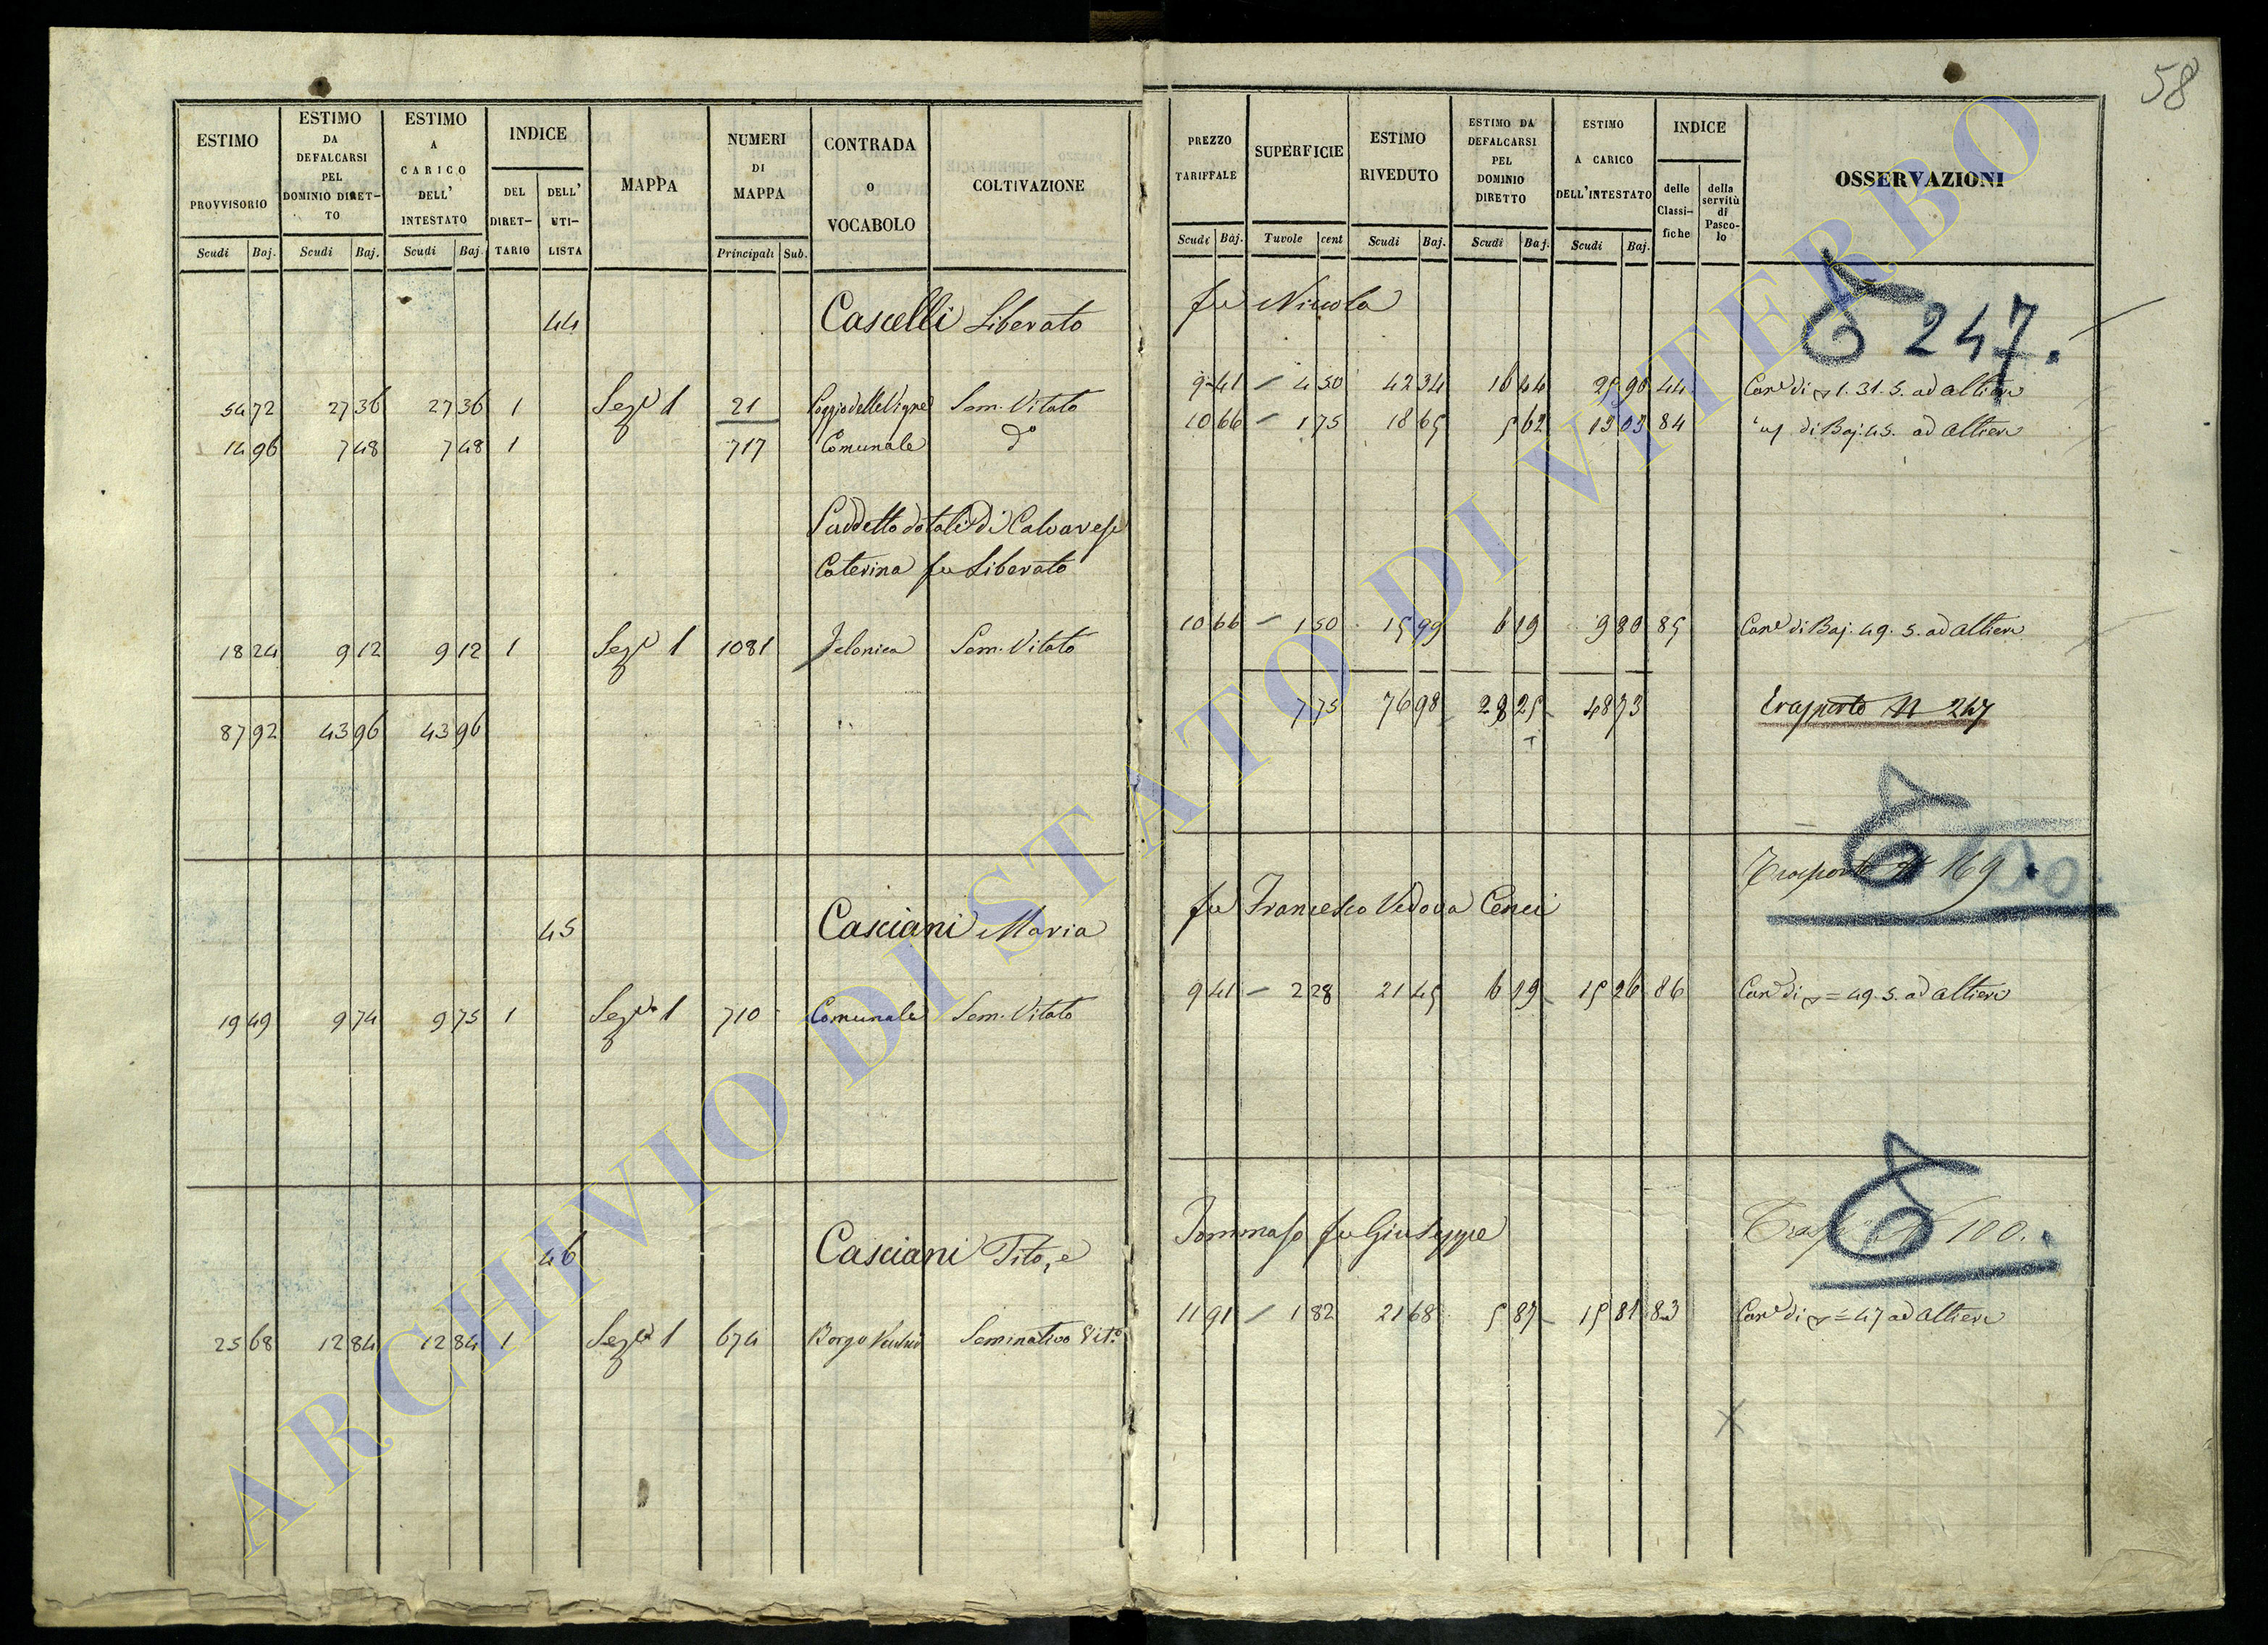 58
ESTIMO PROVVISORIO | ESTIMO DA DEFALCARSI PEL DOMINIO DIRET-TO | ESTIMO A CARICO DELL' INTESTATO | INDICE DEL DIRET-TARIO | DELL' UTI-LISTA | MAPPA | NUMERI DI MAPPA | CONTRADA O VOCABOLO | COLTIVAZIONE | PREZZO TARIFFALE | SUPERFICIE | ESTIMO RIVEDUTO | ESTIMO DA DEFALCARSI PEL DOMINIO DIRETTO | ESTIMO A CARICO DELL'INTESTATO | INDICE delle Classi-fiche | della servitù di Pasco-lo | OSSERVAZIONI
Scudi Baj. | Scudi Baj. | Scudi Baj. | Principali Sub. | Scudi Baj. | Tavole cent | Scudi Baj. | Scudi Baj. | Scudi Baj.
44 Cascelli Liberato fu Nicola 247.
54 72 27 36 27 36 1 Sez.e 1 21 Poggio delle Vigne Sem. Vitato 9 41 4 50 42 34 16 44 25 90 44 Can.e di 1. 31. 5. ad Altieri
14 96 7 48 7 48 1 717 Comunale d.o 10 66 1 75 18 65 5 62 13 03 84 di Baj. 45. ad Altieri
Suddetto dotali di Calvarese
Caterina fu Liberato
18 24 9 12 9 12 1 Sez.e 1 1081 Sem. Vitato 10 66 1 50 15 99 6 19 9 80 85 Can.e di Baj. 49. 5. ad Altieri
87 92 43 96 43 96 7 75 76 98 28 25 48 73 Trasporto N 247
100.
Trasporto N 169
45 Casciani Maria fu Francesco Vedova Cenci
19 49 9 74 9 75 1 Sez.e 1 710 Comunale Sem. Vitato 9 41 2 28 21 45 6 19 15 26 86 Can.e di = 49. 5. ad Altieri
46 Casciani Tito, e Tommaso fu Giuseppe Trasp.o N 100.
25 68 12 84 12 84 1 Sez.e 1 674 Borgo Vecchio Seminativo Vit.o 11 91 1 82 21 68 5 87 15 81 83 Can.e di = 47 ad Altieri
ARCHIVIO DI STATO DI VITERBO